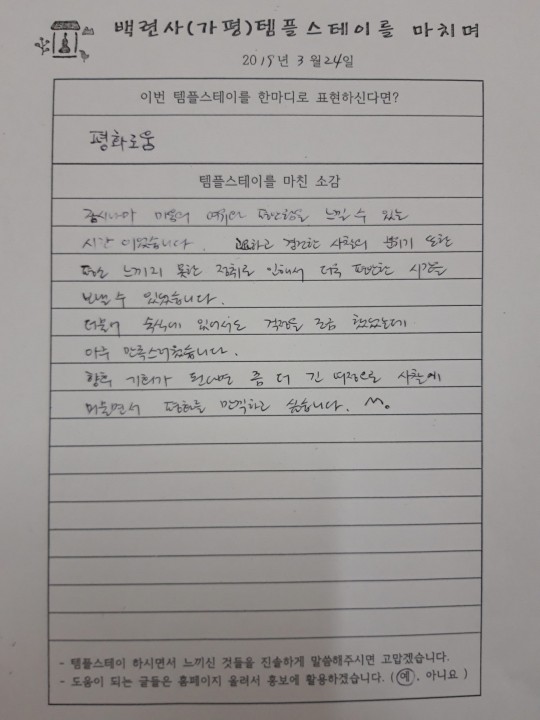 백련사(가평)템플스테이를 마치며
2019년 3월 24일
이번 템플스테이를 한마디로 표현하신다면?
평화로움
템플스테이를 마친 소감
잠시나마 마음의 여유와 편안함을 느낄 수 있는
시간 이었습니다. 하고 경건한 사찰의 분위기 또한
느끼지 못한 정취로 인해서 더욱 편안한 시간을
보낼 수 있었습니다.
더불어 숙식에 있어서도 걱정을 조금 했었는데
아주 만족스러웠습니다.
향후 기회가 된다면 좀 더 긴 여정으로 사찰에
머물면서 평화를 만끽하고 싶습니다.
- 템플스테이 하시면서 느끼신 것들을 진솔하게 말씀해주시면 고맙겠습니다.
- 도움이 되는 글들은 홈페이지 올려서 홍보에 활용하겠습니다. (예, 아니요)